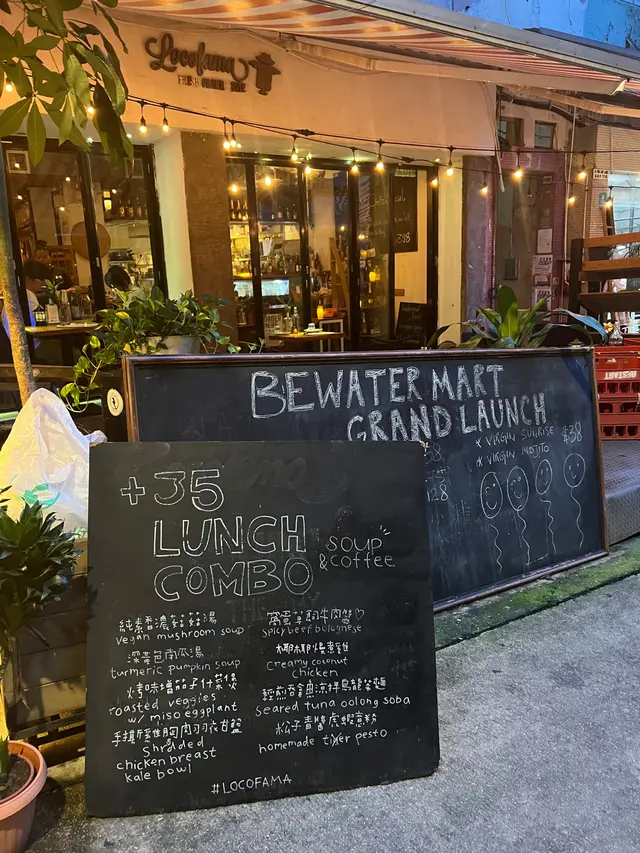 Locofama
BEWATER MART
GRAND LAUNCH
* VIRGIN SUNRISE $38
* VIRGIN MOJITO
+35
LUNCH
COMBO
soup
& coffee
純素香濃菇菇湯
vegan mushroom soup
深黃色南瓜湯
turmeric pumpkin soup
roasted veggies
w/ miso eggplant
Shredded
chicken breast
kale bowl
spicy beef bolognese
椰椰燒春雞
Creamy coconut
chicken
seared tuna oolong soba
松子青醬虎蝦意粉
homemade tiger pesto
#LOCOFAMA